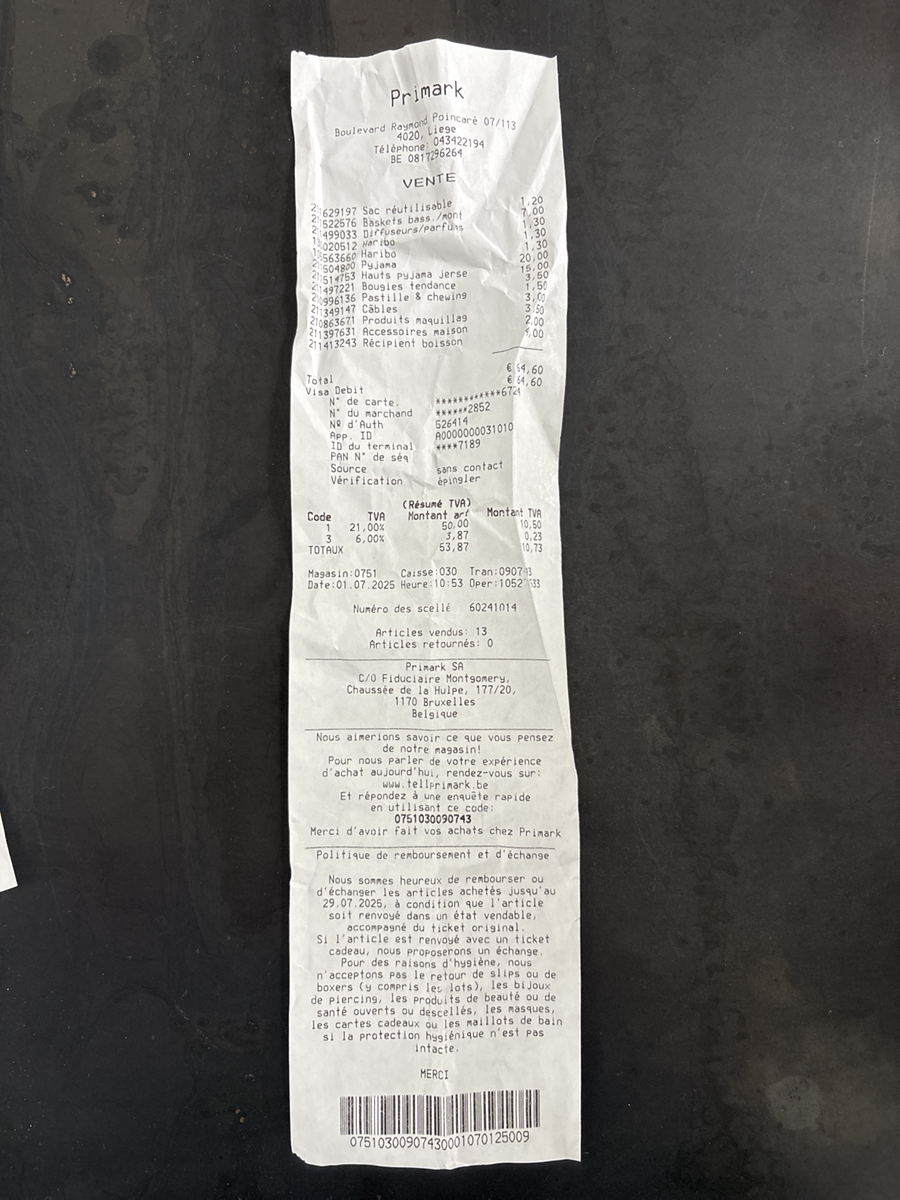 Primark
Boulevard Raymond Poincaré 07/113
4020, Liege
Téléphone: 043422194
BE 0817296264
VENTE
Sac réutilisable 1,20
Baskets bass./mont 7,00
Diffuseurs/parfums 1,30
Haribo 1,30
Haribo 1,30
Pyjama 20,00
Hauts pyjama jerse 15,00
211497221 Bougies tendance 3,50
210996136 Pastille & chewing 1,50
211349147 Câbles 3,00
210863671 Produits maquillag 3,50
211397631 Accessoires maison 2,00
211413243 Récipient boisson 4,00
Total € 64,60
Visa Debit € 64,60
N° de carte. ************6724
N° du marchand ******2852
Nº d'Auth 526414
App. ID A0000000031010
ID du terminal ****7189
PAN N° de séq
Source sans contact
Vérification épingler
(Résumé TVA)
Code TVA Montant art Montant TVA
1 21,00% 50,00 10,50
3 6,00% 3,87 0,23
TOTAUX 53,87 10,73
Magasin:0751 Caisse:030 Tran:090743
Date:01.07.2025 Heure:10:53
Numéro des scellé 60241014
Articles vendus: 13
Articles retournés: 0
Primark SA
C/O Fiduciaire Montgomery,
Chaussée de la Hulpe, 177/20,
1170 Bruxelles
Belgique
Nous aimerions savoir ce que vous pensez
de notre magasin!
Pour nous parler de votre expérience
d'achat aujourd'hui, rendez-vous sur:
www.tellprimark.be
Et répondez à une enquête rapide
en utilisant ce code:
0751030090743
Merci d'avoir fait vos achats chez Primark
Politique de remboursement et d'échange
Nous sommes heureux de rembourser ou
d'échanger les articles achetés jusqu'au
29.07.2025, à condition que l'article
soit renvoyé dans un état vendable,
accompagné du ticket original.
Si l'article est renvoyé avec un ticket
cadeau, nous proposerons un échange.
Pour des raisons d'hygiène, nous
n'acceptons pas le retour de slips ou de
boxers (y compris les lots), les bijoux
de piercing, les produits de beauté ou de
santé ouverts ou descellés, les masques,
les cartes cadeaux ou les maillots de bain
si la protection hygiénique n'est pas
intacte.
MERCI
07510300907430001070125009